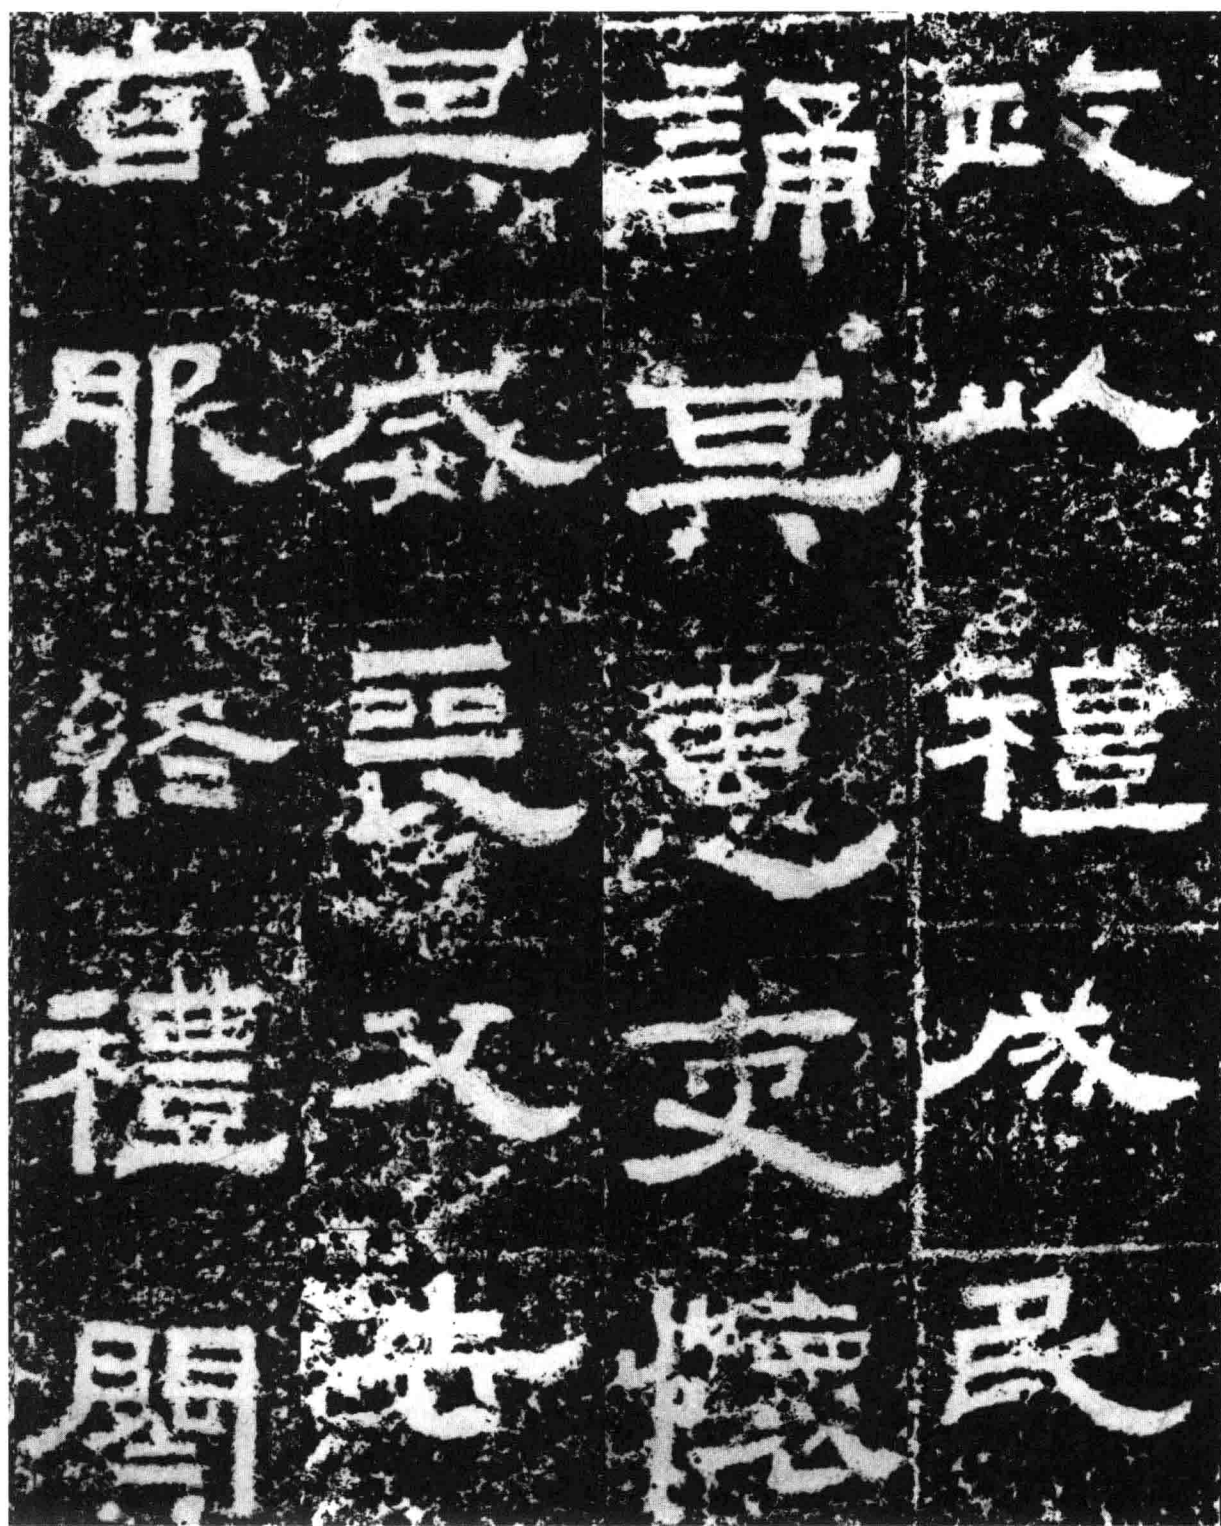 政以禮成民
誦其惠吏懷
其威喪父去
官服終禮闋